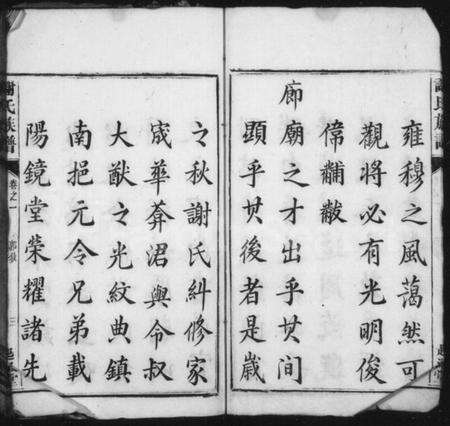 雍穆之風藹然可
觀將必有光明俊
偉黼黻
廊廟之才出乎其間
顕乎其後者是歳
之秋謝氏糾修家
宬華莾涒與令叔
大猷之光紋典鎮
南挹元令兄弟載
陽鏡堂荣耀諸先
謝氏族譜
卷之一
三